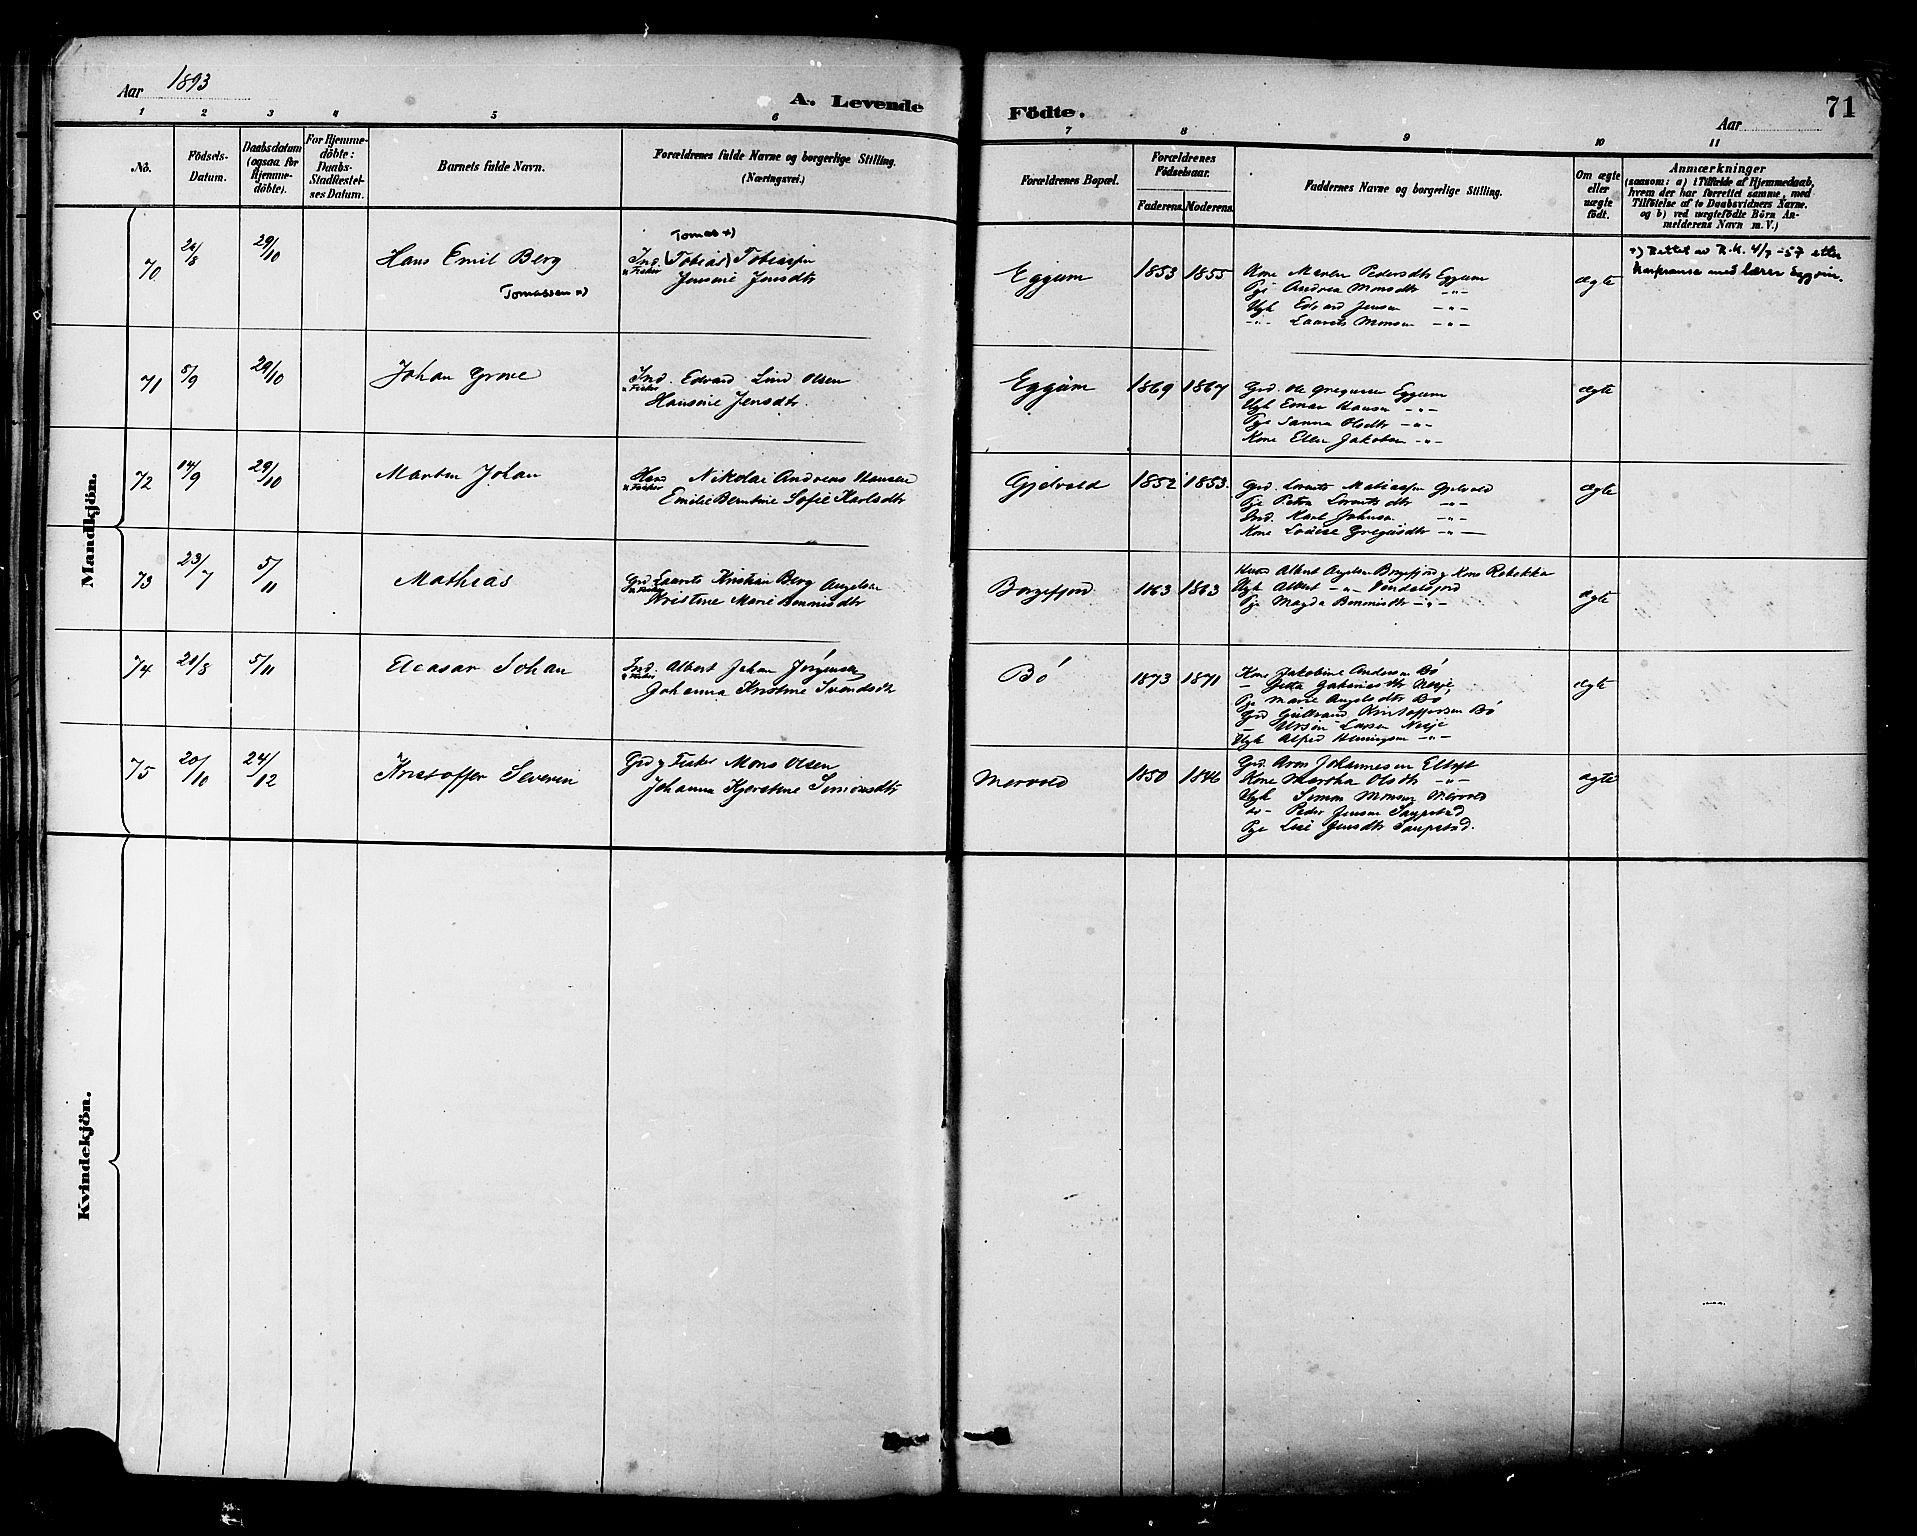 Aar 1893
A. Levende
Fødte.
Aar
71
1 2 3 4 5 6 7 8 9 10 11
No.
Födsels-
Datum.
Daabsdatum
(ogsaa for
Hjemme-
döbte).
For Hjemme-
döbte:
Daabs-
Stadfæstel-
ses Datum.
Barnets fulde Navn.
Forældrenes fulde Navne og borgerlige Stilling.
(Næringsvei.)
Forældrenes Bopæl.
Forældrenes
Fødselsaar.
Faderens. Moderens.
Faddernes Navne og borgerlige Stilling.
Om ægte
eller
uægte
født.
Anmærkninger
(saasom: a) i Tilfælde af Hjemmedaab,
hvem der har forrettet samme, med
Tilföielse af to Daabsvidners Navne.
og b) ved uægtefödte Börn An-
melderens Navn m.V.)
Mandkjön.
70
26/8
29/10
Hans Emil Berg
Tomassen x)
Tomas x)
Ind. (Tobias) Tobiassen
Fisker
Jensine Jensdtr
Eggum
1853 1855
Kone Maren Pedersdtr Eggum
Pge Andrea Monsdtr -"-
Ugk Edvard Jensen -"-
-"- Laurits Monsen -"-
ægte
x) Rettet av R.K. 4/7-57 etter
konferanse med lærer Eggum.
71
5/9
29/10
Johan Grove
Ind. Edvard Lind Olsen
Fisker
Hansine Jensdtr.
Eggum
1869 1867
Grd. Ole Gregusse Eggum
Ugk Einar Hansen -"-
Pge Sanna Olsdtr -"-
Kone Ellen Jakobsen -"-
ægte
72
14/9
29/10
Morten Johan
Nikolai Andreas Hansen
Fisker
Emilie Berntine Sofie Karlsdtr
Gjelvold
1852 1853.
Grd. Lorents Matiassen Gjelvold
Pge Petra Lorentsdtr -"-
Ind. Karl Johnsen -"-
Kone Lovise Gregusdtr -"-
ægte
73
23/7
5/11
Mathias
Grd Laurits Kristian Berg Angelsen
Fisker
Kristine Marie Benonisdtr
Borgefjord
1863 1863
Albert Angelsen Borgefjord g Kone Rebekka
Ugk Albert -"- Vendalsjord
Pge Magda Benonisdtr -"-
ægte
74
20/8
5/11
Eleasar Johan
Ind. Albert Johan Jörgensen
Fisker
Johanna Kristine Svendsdtr
Bö
1873 1871
Kone Jakobine Andersen Bö
- Jetta Johannesdtr Nesje
Pge Marie Angelsdtr Bö
Grd Gulbrand Kristoffersen Bö
- Ursin Larsen Nesje
Ugk Alfred Henningsen -"-
ægte
75
20/10
24/12
Kristoffer Severin
Grd g Fisker Mons Olsen
Johanna Kjerstine Simonsdtr
Mervold
1850 1846
Grd. Aron Johannesen Eltoft
Kone Martha Olsdtr -"-
Ugk Simon Monsen Mervold
- Peder Jensen Saupstad
Pge Lise Jensdtr Saupstad.
ægte
Kvindekjön.